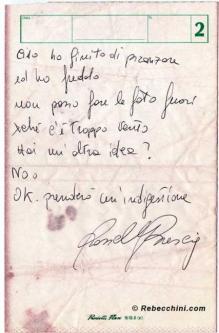 2
Ora ho finito di pranzare
ed ho freddo
non posso fare le foto fuori
xché c'è troppo vento
Hai un'altra idea?
No..
OK. prenderò un'indigestione
© Rebecchini.com